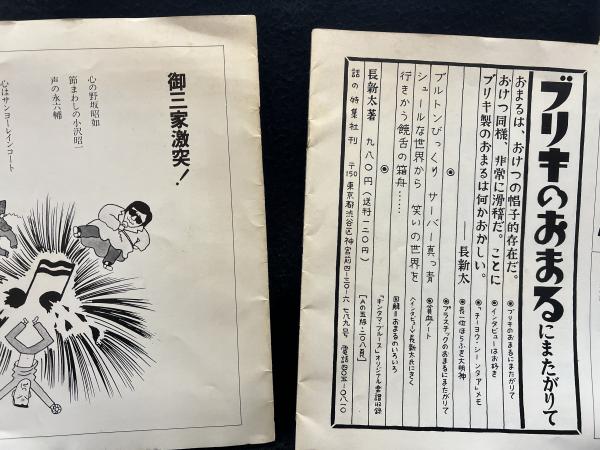 御三家激突!
心の野坂昭如
節まわしの小沢昭一
声の永六輔
心はサンヨーレインコート
ブリキのおまるにまたがりて
おまるは、おけつの帽子的存在だ。
おけつ同様、非常に滑稽だ。ことに
ブリキ製のおまるは何かおかしい。
――長新太
●ブリキのおまるにまたがりて
●インタビューはお好き
●「チーヨウ・シーンタア」メモ
●長一位ほらふき大明神
●プラスチックのおまるにまたがりて
●貧血ノート
〈インタビュー〉長新太氏にきく
図解=おまるのいろいろ
「キンタマ・ブルース」オリジナル楽譜収録
[A5版・二〇八頁]
ブルトンびっくり サーバー真っ青
シュールな世界から 笑いの世界を
行きかう饒舌の箱舟……
長新太著 九八〇円(送料一二〇円)
話の特集社刊 〒150 東京都渋谷区神宮前四-三〇-六 七八九号 電話四〇五-〇八一〇